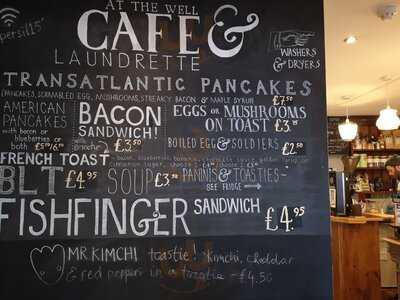 AT THE WELL
CAFE &
LAUNDRETTE
WASHERS
& DRYERS
TRANSATLANTIC PANCAKES
PANCAKES, SCRAMBLED EGG, MUSHROOMS, STREAKY BACON & MAPLE SYRUP £7.50
AMERICAN
PANCAKES
with bacon or
blueberries or
both
BACON
SANDWICH!
£3.50
EGGS or MUSHROOMS
ON TOAST £3.75
BOILED EGG & SOLDIERS £2.50
FRENCH TOAST
BLT £4.95
SOUP £3.50
PANINIS & TOASTIES
SEE FRIDGE
FISHFINGER SANDWICH £4.95
MR KIMCHI toastie! Kimchi, cheddar
& red pepper in a toastie - £4.50